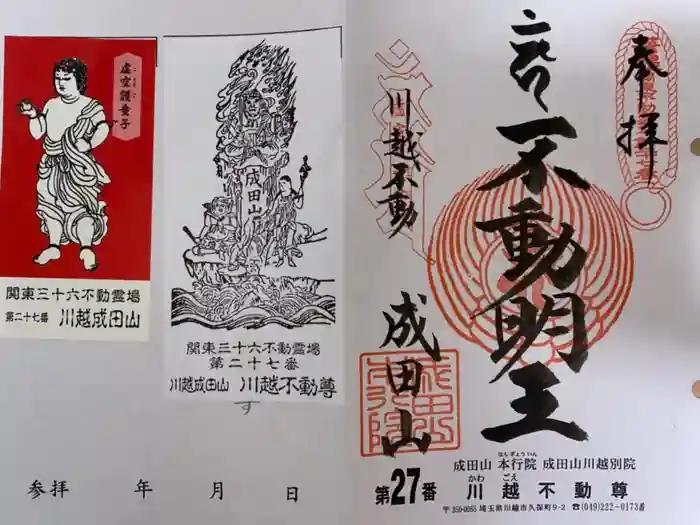 虚空護童子
こくうご
関東三十六不動霊場
第二十七番 川越成田山
成田山
関東三十六不動霊場
第二十七番
川越成田山 川越不動尊
す
参拝 年 月 日
奉拝
不動明王
川越不動
成田山
成田山 本行院 成田山川越別院
ほんぎょういん
かわ ごえ
第27番 川越不動尊
〒350-0055 埼玉県川越市久保町9-2 ☎(049)222-0173番